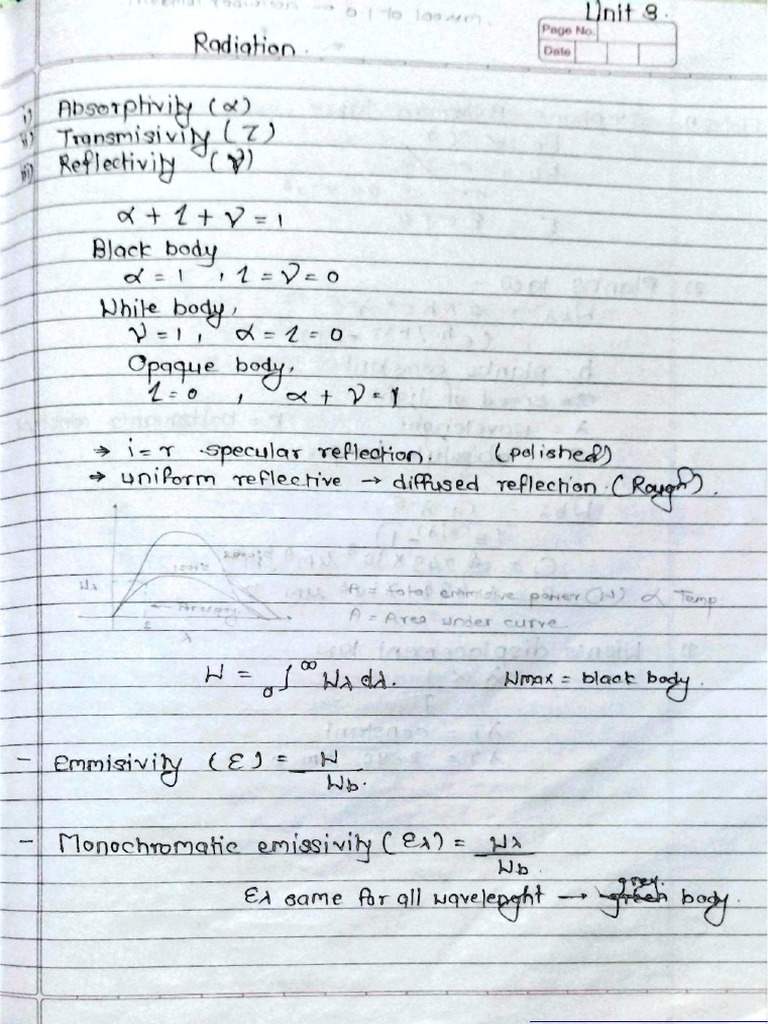 Unit 3.
Page No.
Date
Radiation.
i) Absorptivity (α)
ii) Transmisivity (τ)
iii) Reflectivity (γ)
α + τ + γ = 1
Black body
α = 1 , τ = γ = 0
White body,
γ = 1, α = τ = 0
Opaque body,
τ = 0 , α + γ = 1
→ i = r specular reflection. (polished)
→ uniform reflective → diffused reflection. (Rough).
Wλ
A = total emmisive power (W) ∝ Temp
A = Area under curve
λ
W = ₀∫^∞ Wλ dλ. Wmax = black body.
- Emmisivity (ε) = W / Wb.
- Monochromatic emissivity (ελ) = Wλ / Wb
ελ same for all wavelenght → grey body.